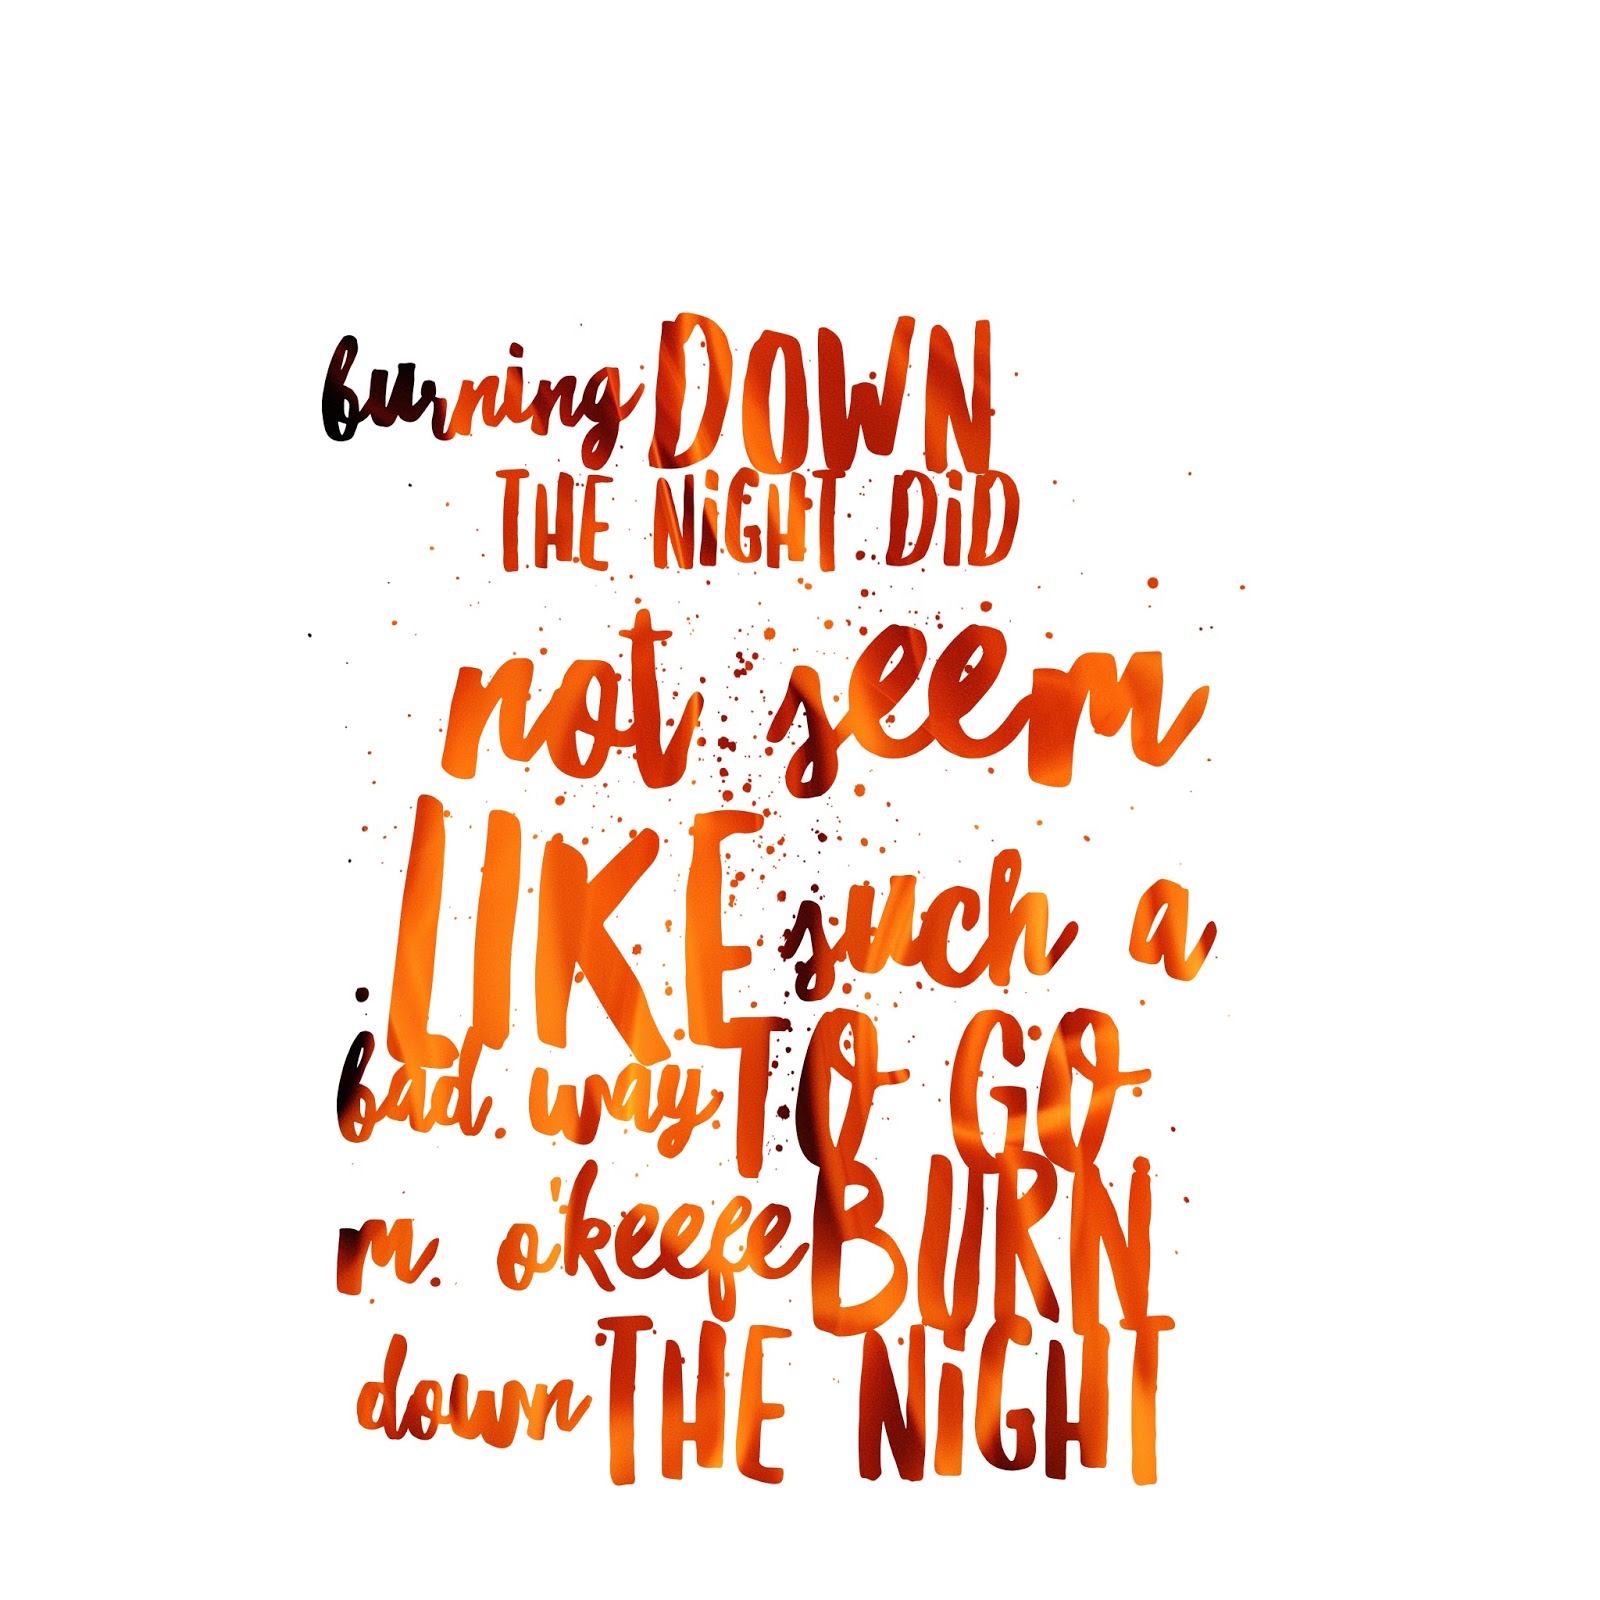 burning DOWN
THE NiGHT DiD
not seem
LIKE such a
bad way TO GO
m. o'keefe BURN
down THE NiGHT